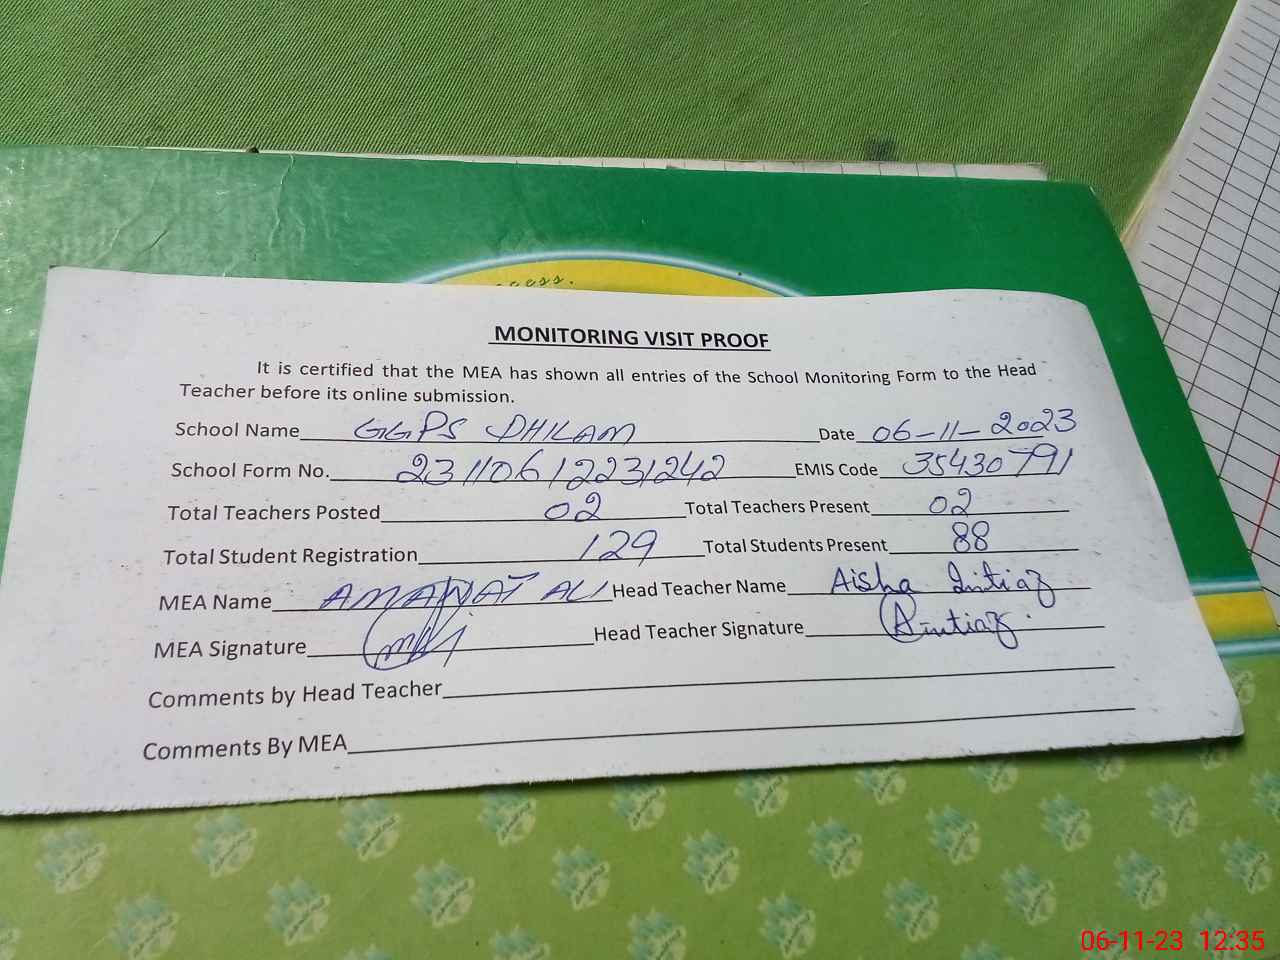 cess.
MONITORING VISIT PROOF
It is certified that the MEA has shown all entries of the School Monitoring Form to the Head
Teacher before its online submission.
School Name GGPS DHILAM Date 06-11-2023
School Form No. 23110612231242 EMIS Code 35430791
Total Teachers Posted 02 Total Teachers Present 02
Total Student Registration 129 Total Students Present 88
MEA Name AMANAT ALI Head Teacher Name Aisha Imtiaz
MEA Signature Head Teacher Signature Aimtiaz
Comments by Head Teacher
Comments By MEA
06-11-23 12:35